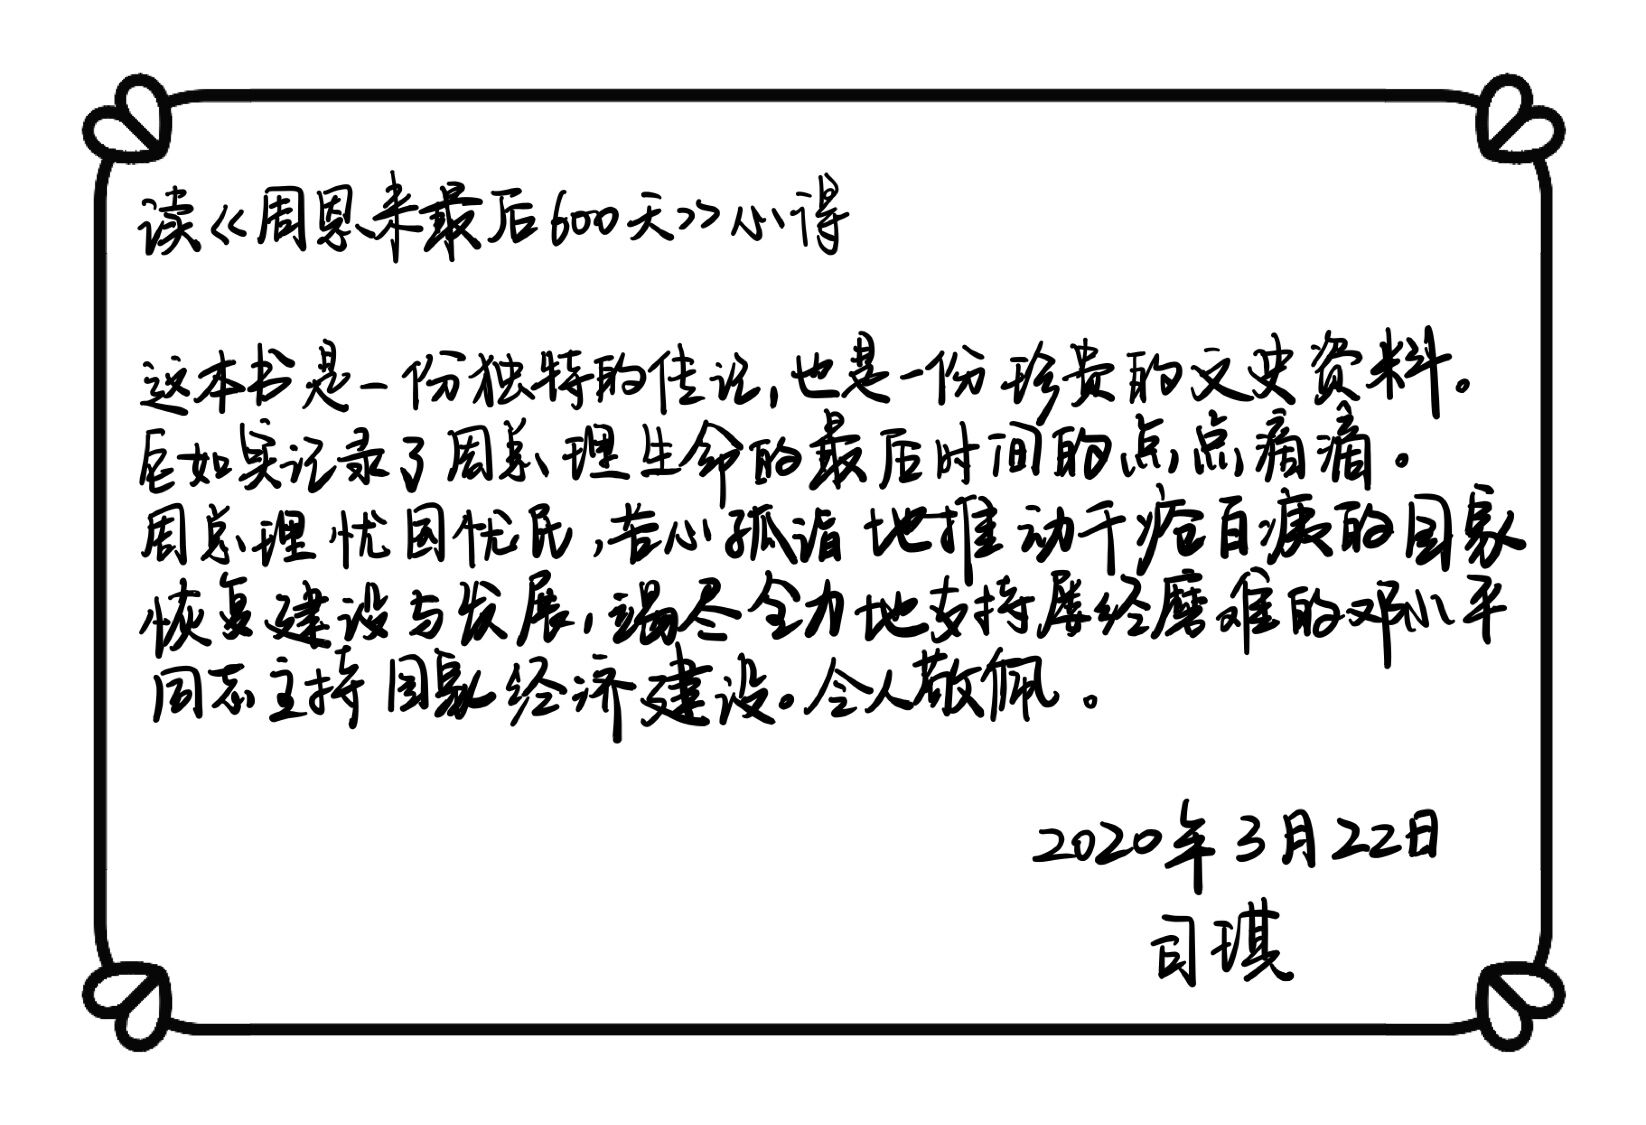 读《周恩来最后600天》小得
这本书是一份独特的传记,也是一份珍贵的文史资料。
它如实记录了周总理生命的最后时间的点点滴滴。
周总理忧国忧民,苦心孤诣地推动千疮百痍的国家
恢复建设与发展,竭尽全力地支持屡经磨难的邓小平
同志主持国家经济建设。令人敬佩。
2020年3月22日
司琪